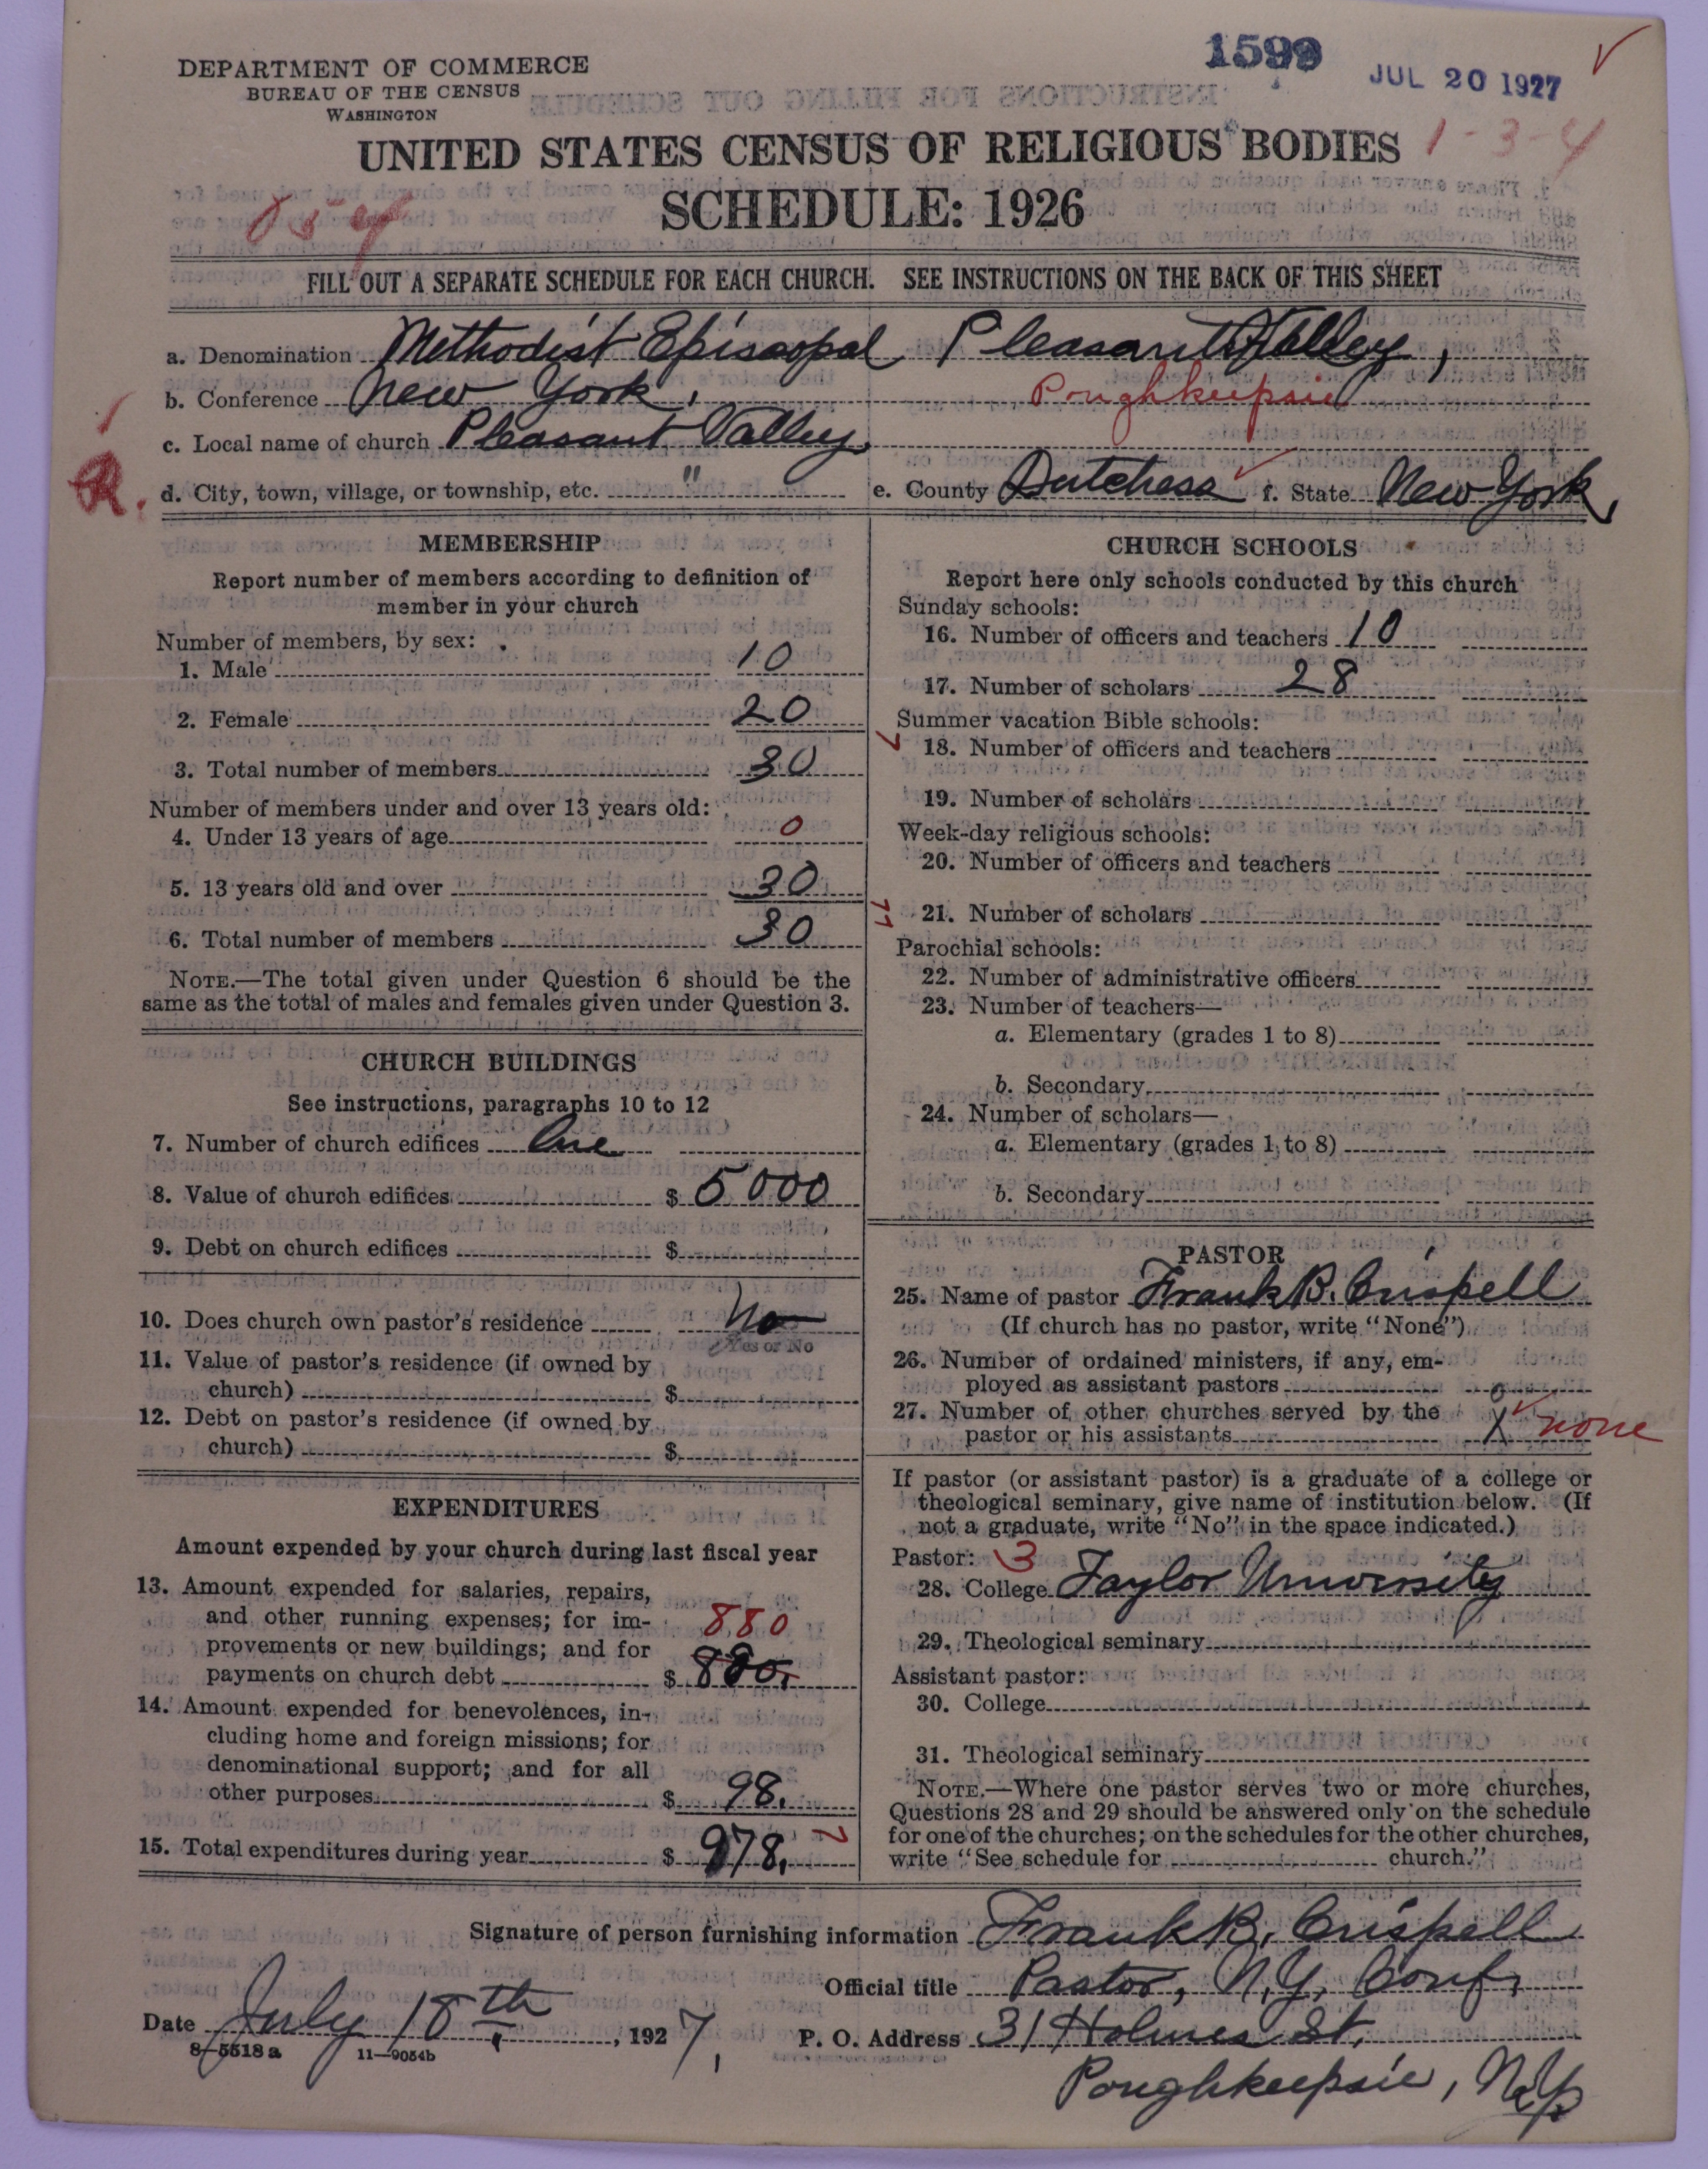 1599
JUL 20 1927
DEPARTMENT OF COMMERCE
BUREAU OF THE CENSUS
WASHINGTON
UNITED STATES CENSUS OF RELIGIOUS BODIES
1-3-4
SCHEDULE: 1926
054
FILL OUT A SEPARATE SCHEDULE FOR EACH CHURCH. SEE INSTRUCTIONS ON THE BACK OF THIS SHEET
a. Denomination Methodist Episcopal, Pleasant Valley,
b. Conference New York, Poughkeepsie
c. Local name of church Pleasant Valley,
R.
d. City, town, village, or township, etc. " e. County Dutchess f. State New York,
MEMBERSHIP
Report number of members according to definition of
member in your church
Number of members, by sex:
1. Male 10
2. Female 20
3. Total number of members 30
Number of members under and over 13 years old:
4. Under 13 years of age 0
5. 13 years old and over 30
6. Total number of members 30
NOTE.—The total given under Question 6 should be the
same as the total of males and females given under Question 3.
CHURCH BUILDINGS
See instructions, paragraphs 10 to 12
7. Number of church edifices One
8. Value of church edifices $ 5000
9. Debt on church edifices $
10. Does church own pastor's residence No
Yes or No
11. Value of pastor's residence (if owned by
church) $
12. Debt on pastor's residence (if owned by
church) $
EXPENDITURES
Amount expended by your church during last fiscal year
13. Amount expended for salaries, repairs,
and other running expenses; for im-
880
provements or new buildings; and for
payments on church debt $ 880.
14. Amount expended for benevolences, in-
cluding home and foreign missions; for
denominational support; and for all
other purposes $ 98.
15. Total expenditures during year $ 978.
CHURCH SCHOOLS
Report here only schools conducted by this church
Sunday schools:
16. Number of officers and teachers 10
17. Number of scholars 28
Summer vacation Bible schools:
18. Number of officers and teachers
19. Number of scholars
Week-day religious schools:
20. Number of officers and teachers
21. Number of scholars
Parochial schools:
22. Number of administrative officers
23. Number of teachers—
a. Elementary (grades 1 to 8)
b. Secondary
24. Number of scholars—
a. Elementary (grades 1 to 8)
b. Secondary
PASTOR
25. Name of pastor Frank B. Crispell
(If church has no pastor, write "None")
26. Number of ordained ministers, if any, em-
ployed as assistant pastors 0
27. Number of other churches served by the
pastor or his assistants X none
If pastor (or assistant pastor) is a graduate of a college or
theological seminary, give name of institution below. (If
not a graduate, write "No" in the space indicated.)
Pastor: 3
28. College Taylor University
29. Theological seminary
Assistant pastor:
30. College
31. Theological seminary
NOTE.—Where one pastor serves two or more churches,
Questions 28 and 29 should be answered only on the schedule
for one of the churches; on the schedules for the other churches,
write "See schedule for church."
Signature of person furnishing information Frank B. Crispell
Official title Pastor, N.Y. Conf.
Date July 18th, 1927, P. O. Address 31 Holmes St.
8-5518a 11-9054b
Poughkeepsie, N.Y.